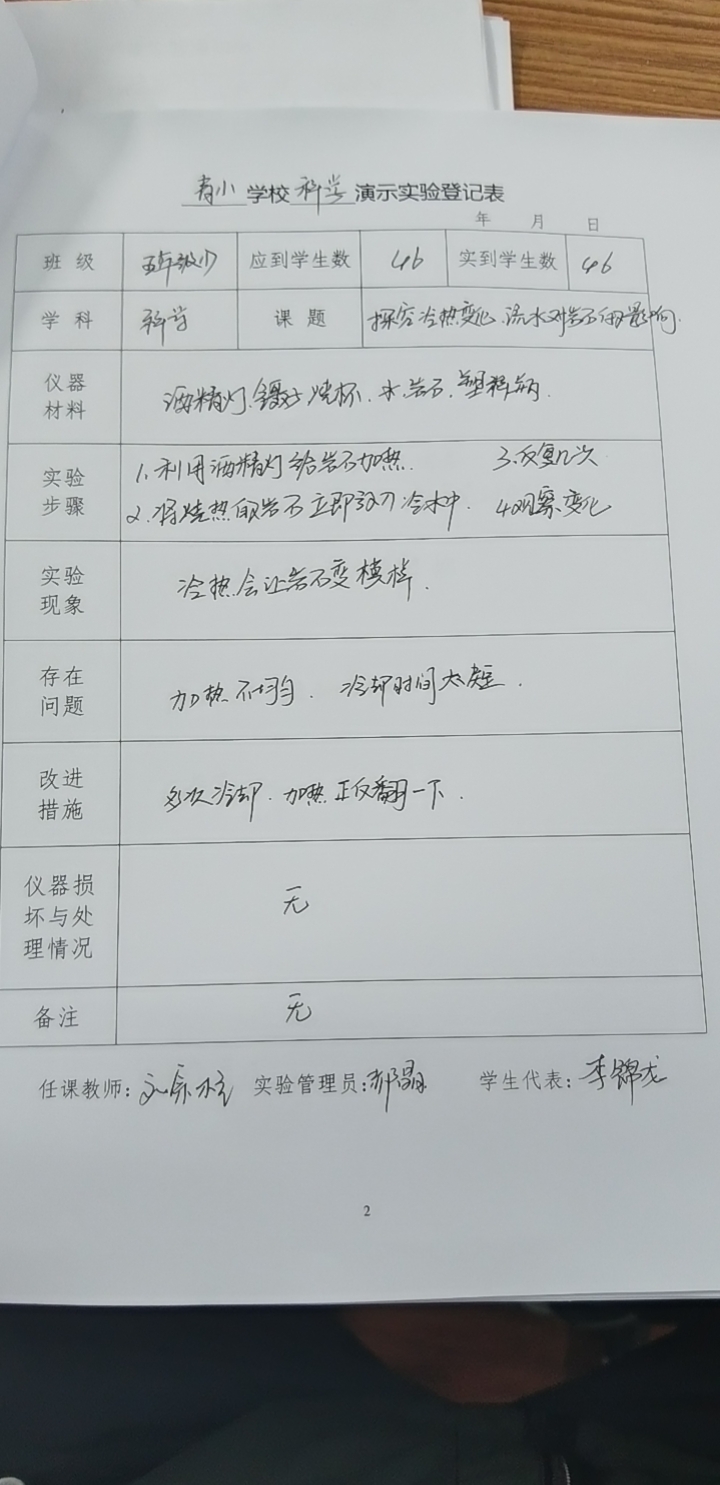 学校科学演示实验登记表
年 月 日
班级 五年级 应到学生数 46 实到学生数 46
学科 科学 课题 探究冷热变化、流水对岩石的影响.
仪器材料 酒精灯、镊子、烧杯、水、岩石、塑料瓶.
实验步骤 1.利用酒精灯给岩石加热. 3.反复几次
2.将烧热的岩石立即放入冷水中. 4观察变化
实验现象 冷热会让岩石变模样.
存在问题 加热不均匀. 冷却时间太短.
改进措施 多次冷却. 加热正反翻一下.
仪器损坏与处理情况 无
备注 无
任课教师: 实验管理员: 学生代表: 李锦龙
2